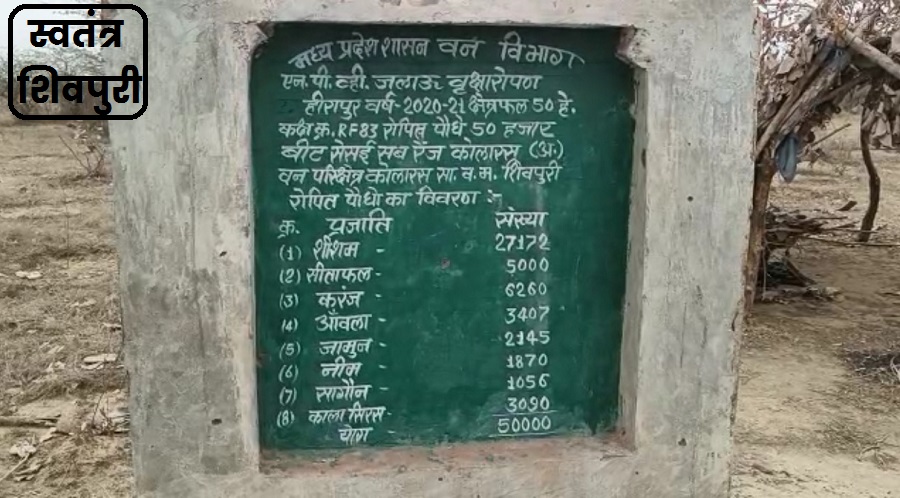 स्वतंत्र
शिवपुरी
मध्य प्रदेश शासन वन विभाग
एन.पी.व्ही. जलाऊ वृक्षारोपण
हीरापुर वर्ष-2020-21 क्षेत्रफल 50 हे.
कक्ष क्र. RF83 रोपित पौधे 50 हजार
बीट सेसई सब रेंज कोलारस (अ.)
वन परिक्षेत्र कोलारस सा. व. म. शिवपुरी
रोपित पौधो का विवरण :-
क्र. प्रजाति संख्या
(1) शीशम - 27172
(2) सीताफल - 5000
(3) करंज - 6260
(4) आँवला - 3407
(5) जामुन - 2145
(6) नीम - 1870
(7) सागौन - 1056
(8) काला सिरस - 3090
योग - 50000